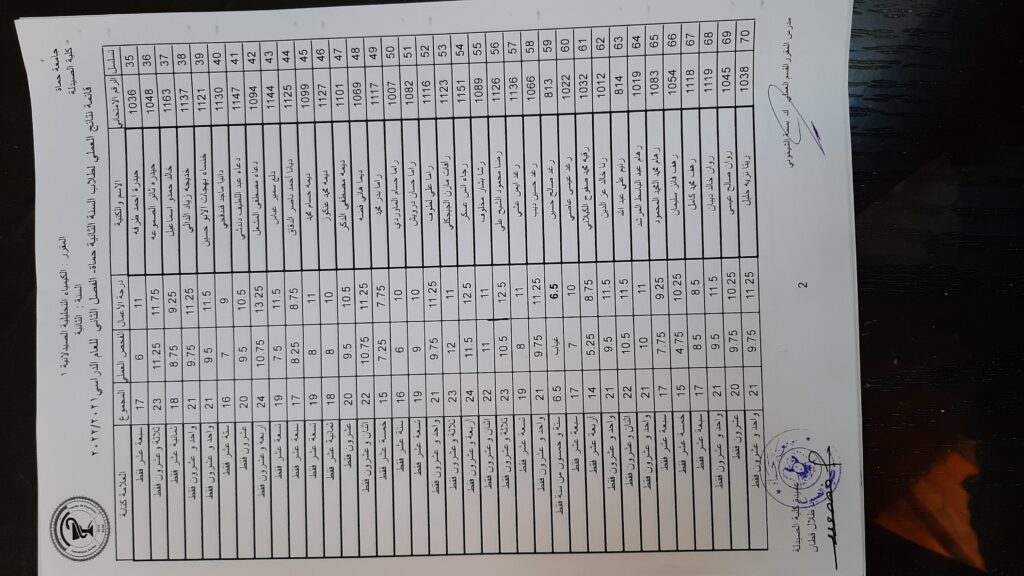 جامعة حماة
كلية الصيدلة
المقرر : الكيمياء التحليلية الصيدلانية ١
السنة : الثانية
قائمة نتائج العملي لطلاب السنة الثانية حماة- الفصل الثاني للعام الدراسي ٢٠٢٢/٢٠٢١
تسلسل الرقم الامتحاني الاسم والكنية درجة الاعمال الفحص العملي المجموع العلامة كتابة
35 1036 حيدرة احمد طرفه 11 6 17 سبعة عشر فقط
36 1048 حيدر 11.75 11.25 23 ثلاثة و عشرون فقط
37 1163 خالد حمدو اسماعيل 9.25 8.75 18 ثمانية عشر فقط
38 1137 خديجه زياد الدالي 11.25 9.75 21 واحد و عشرون فقط
39 1121 خنساء بهجات الابو حسين 11.5 9.5 21 واحد و عشرون فقط
40 1130 دانيا ماجد 9 7 16 ستة عشر فقط
41 1147 دعاء عبد اللطيف 10.5 9.5 20 عشرون فقط
42 1094 دعاء مصطفى 13.25 10.75 24 اربعة و عشرون فقط
43 1144 دلع سمير عباس 11.5 7.5 19 تسعة عشر فقط
44 1125 ديما احمد ناصر 8.75 8.25 17 سبعة عشر فقط
45 1099 ديمه حسام محمد 11 8 19 تسعة عشر فقط
46 1127 ديمه محمد 10 8 18 ثمانية عشر فقط
47 1101 ديمه مصطفى 10.5 9.5 20 عشرون فقط
48 1069 ديمه هاني 11.25 10.75 22 اثنان و عشرون فقط
49 1117 راما بدر محمد 7.75 7.25 15 خمسة عشر فقط
50 1007 راما حسام 10 6 16 ستة عشر فقط
51 1082 راما حسان درويش 10 9 19 تسعة عشر فقط
52 1116 راما علي 11.25 9.75 21 واحد و عشرون فقط
53 1123 رافت مازن 11 12 23 ثلاثة و عشرون فقط
54 1151 رجاء انس عسكر 12.5 11.5 24 اربعة و عشرون فقط
55 1089 رشا بشار مخلوف 11 11 22 اثنان و عشرون فقط
56 1126 رضا محمود الشيخ علي 12.5 10.5 23 ثلاثة و عشرون فقط
57 1136 رغد ايمن علي 11 8 19 تسعة عشر فقط
58 1066 رغد حسين ديب 11.25 9.75 21 واحد و عشرون فقط
59 813 رغد صالح حسين 6.5 غياب 6.5 ستة و خمسون من مئة فقط
60 1022 رغد عيسى عاصي 10 7 17 سبعة عشر فقط
61 1032 رقيه محمد صفوح الكيلاني 8.75 5.25 14 اربعة عشر فقط
62 1012 رنا خالد عز الدين 11.5 9.5 21 واحد و عشرون فقط
63 814 رنيم علي عبد الله 11.5 10.5 22 اثنان و عشرون فقط
64 1019 رهام عبد الباسط المرشد 11 10 21 واحد و عشرون فقط
65 1083 رهام محمد المحمود 9.25 7.75 17 سبعة عشر فقط
66 1054 رهف فائز سليمان 10.25 4.75 15 خمسة عشر فقط
67 1118 رهف محمد كامل 8.5 8.5 17 سبعة عشر فقط
68 1119 روان خالد ديبان 11.5 9.5 21 واحد و عشرون فقط
69 1045 روان صالح عيسى 10.25 9.75 20 عشرون فقط
70 1038 ريتا نزيه خليل 11.25 9.75 21 واحد و عشرون فقط
مدرس المقرر القسم العملي
كلية الصيدلة
طلال قطان
2